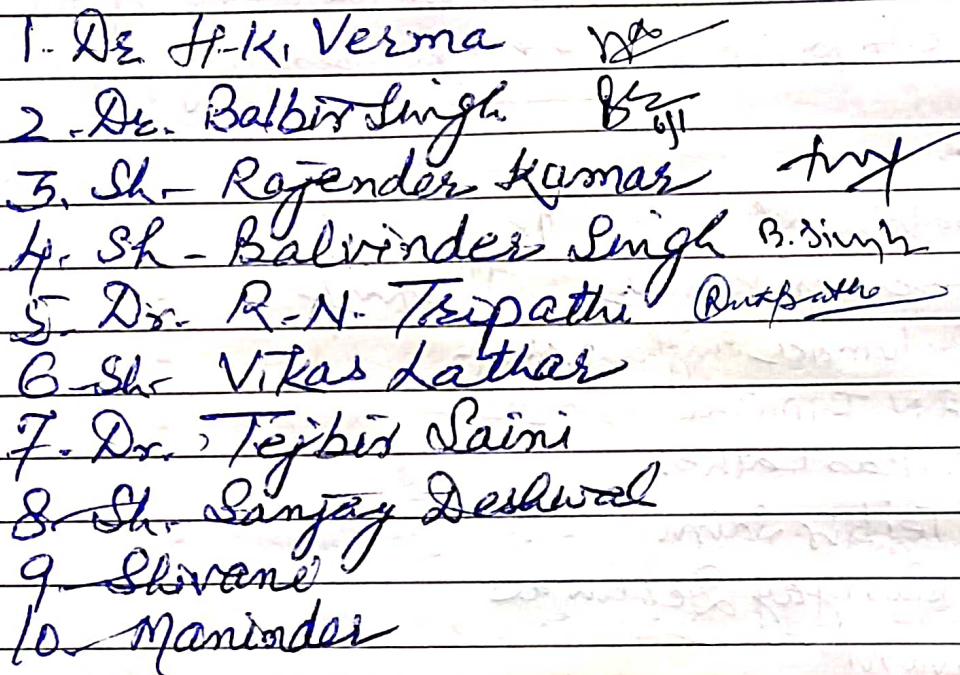 1- Dr H.K. Verma
2. Dr. Balbir Singh
3. Sh- Rajender Kumar
4. Sh - Balvinder Singh B. Singh
5- Dr. R.N. Tripathi
6- Sh- Vikas Lathar
7- Dr. Tejbir Saini
8- Sh. Sanjay Deshwal
9- Shivani
10- Maninder